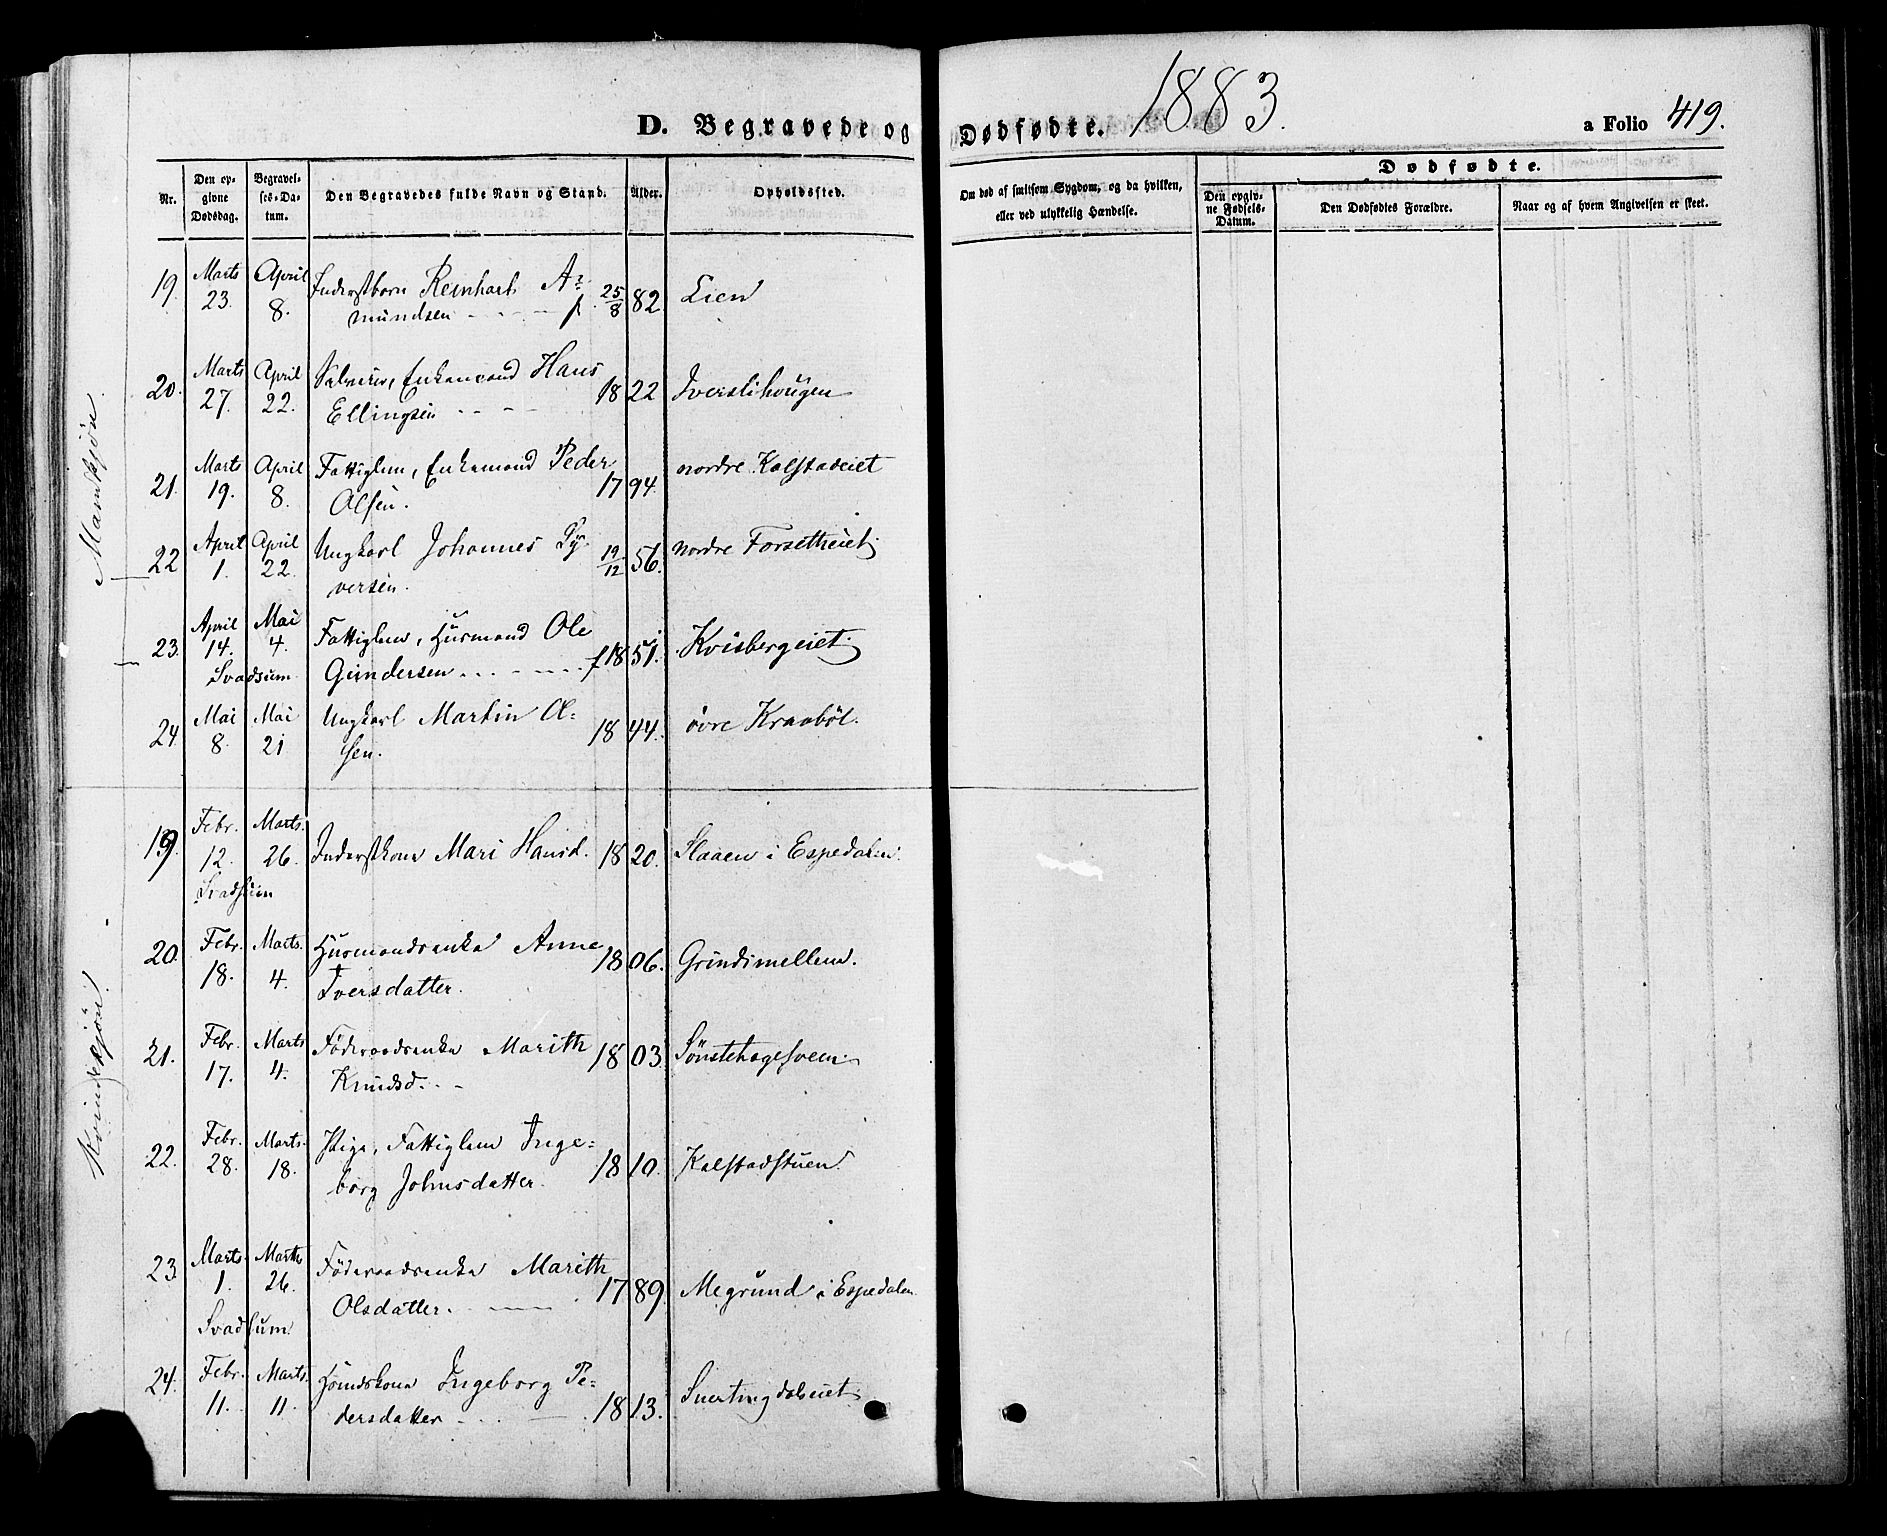 D. Begravede og Dødfødte. 1883. a Folio 419.
Nr. Den opgivne Dødsdag. Begravelses-Datum. Den Begravedes fulde Navn og Stand. Alder. Opholdssted. Om død af smitsom Sygdom, og da hvilken, eller ved ulykkelig Hændelse. Dødfødte. Den opgivne Fødsels-Datum. Den Dødfødtes Forældre. Naar og af hvem Angivelsen er skeet.
Mandkjøn.
19. Marts 23. April 8. Inderstbarn Reinhart A=
mundsen 25/8 82 Lien
20. Marts 27. April 22. Enkemand Hans
Ellingsen 18 22 Iverslihougen
21. Marts 19. April 8. Fattiglem, Enkemand Peder
Olsen. 17 94 nordre Kalstadeiet
22 April 1. April 22. Ungkarl Johannes Sy=
versen. 19/12 56. nordre Forsetheiet.
23. April 14. Mai 4. Fattiglem, Husmand Ole
Svadsum Gundersen f 18 51. Kvisbergeiet.
24. Mai 8. Mai 21 Ungkarl Martin Ol=
sen. 18 44. øvre Kraabøl.
Kvindekjøn.
19. Febr. 12. Marts. 26. Inderstkone Mari Hansd. 18 20. Slaaen i Espedalen.
Svadsum
20. Febr. 18. Marts. 4. Husmandsenke Anne
Iversdatter. 18 06. Grindsmellem.
21. Febr. 17. Marts 4. Föderaadsenke Marith
Knudsd. 18 03.
22. Febr. 28. Marts. 18. Pige, Fattiglem Inge=
borg Johnsdatter. 18 10. Kalstadstuen.
23. Marts 1. Marts 26. Föderaadsenke Marith
Olsdatter. 17 89. Megrund i Espedalen
Svadsum.
24. Febr. 11. Marts. 11. Huuskone Ingeborg Pe=
dersdatter 18 13. Svertingdalseiet.